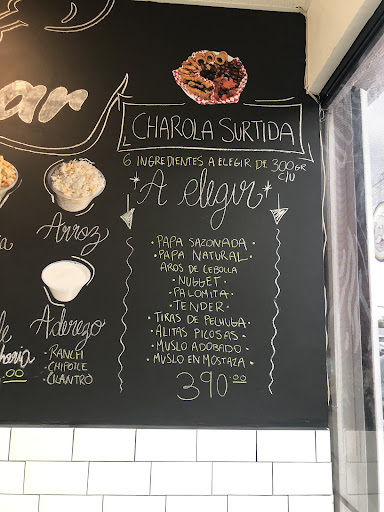 CHAROLA SURTIDA
6 INGREDIENTES A ELEGIR DE 300GR C/U
*A elegir*
· PAPA SAZONADA ·
· PAPA NATURAL ·
AROS DE CEBOLLA
· NUGGET ·
· PALOMITA ·
· TENDER ·
· TIRAS DE PECHUGA ·
· ALITAS PICOSAS ·
· MUSLO ADOBADO ·
· MUSLO EN MOSTAZA ·
390.00
Arroz
Aderezo
· RANCH
· CHIPOTLE
· CILANTRO